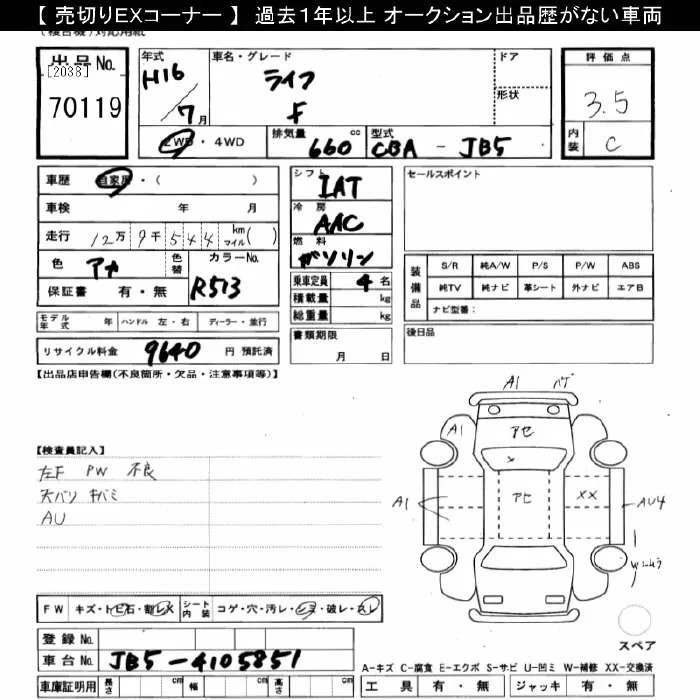 【 売切りEXコーナー 】 過去１年以上 オークション出品歴がない車両
出品No.
[2038]
70119
年式
H16
7月
車名・グレード
ライフ
F
ドア
形状
評価点
3.5
内装
C
2WD・4WD
排気量 660 cc
型式 CBA - JB5
車歴 自家用・( )
車検 年 月
走行 12万 9千 5 4 4 km マイル( )
色 アオ
色替
カラーNo. R513
保証書 有・無
シフト IAT
冷房 AAC
燃料 ガソリン
乗車定員 4 名
積載量 kg
総重量 kg
セールスポイント
装備品
S/R 純A/W P/S P/W ABS
純TV 純ナビ 革シート 外ナビ エアB
ナビ型番:
モデル年式 年 ハンドル 左・右 ディーラー・並行
リサイクル料金 9640 円 預託済
書類期限
月 日
後日品
【出品店申告欄(不良箇所・欠品・注意事項等)】
【検査員記入】
左F PW 不良
天バリ キバミ
AU
A1 ハゲ
A1
アセ
アセ
XX
A1
AU4
FW キズ・トビ石・割レ
シート内装 コゲ・穴・汚レ・シミ・破レ・スレ
登録No.
車台No. JB5-4105851
スペア
車庫証明用 長さ cm 幅 cm 高さ cm
A-キズ C-腐食 E-エクボ S-サビ U-凹ミ W-補修 XX-交換済
工具 有・無 ジャッキ 有・無